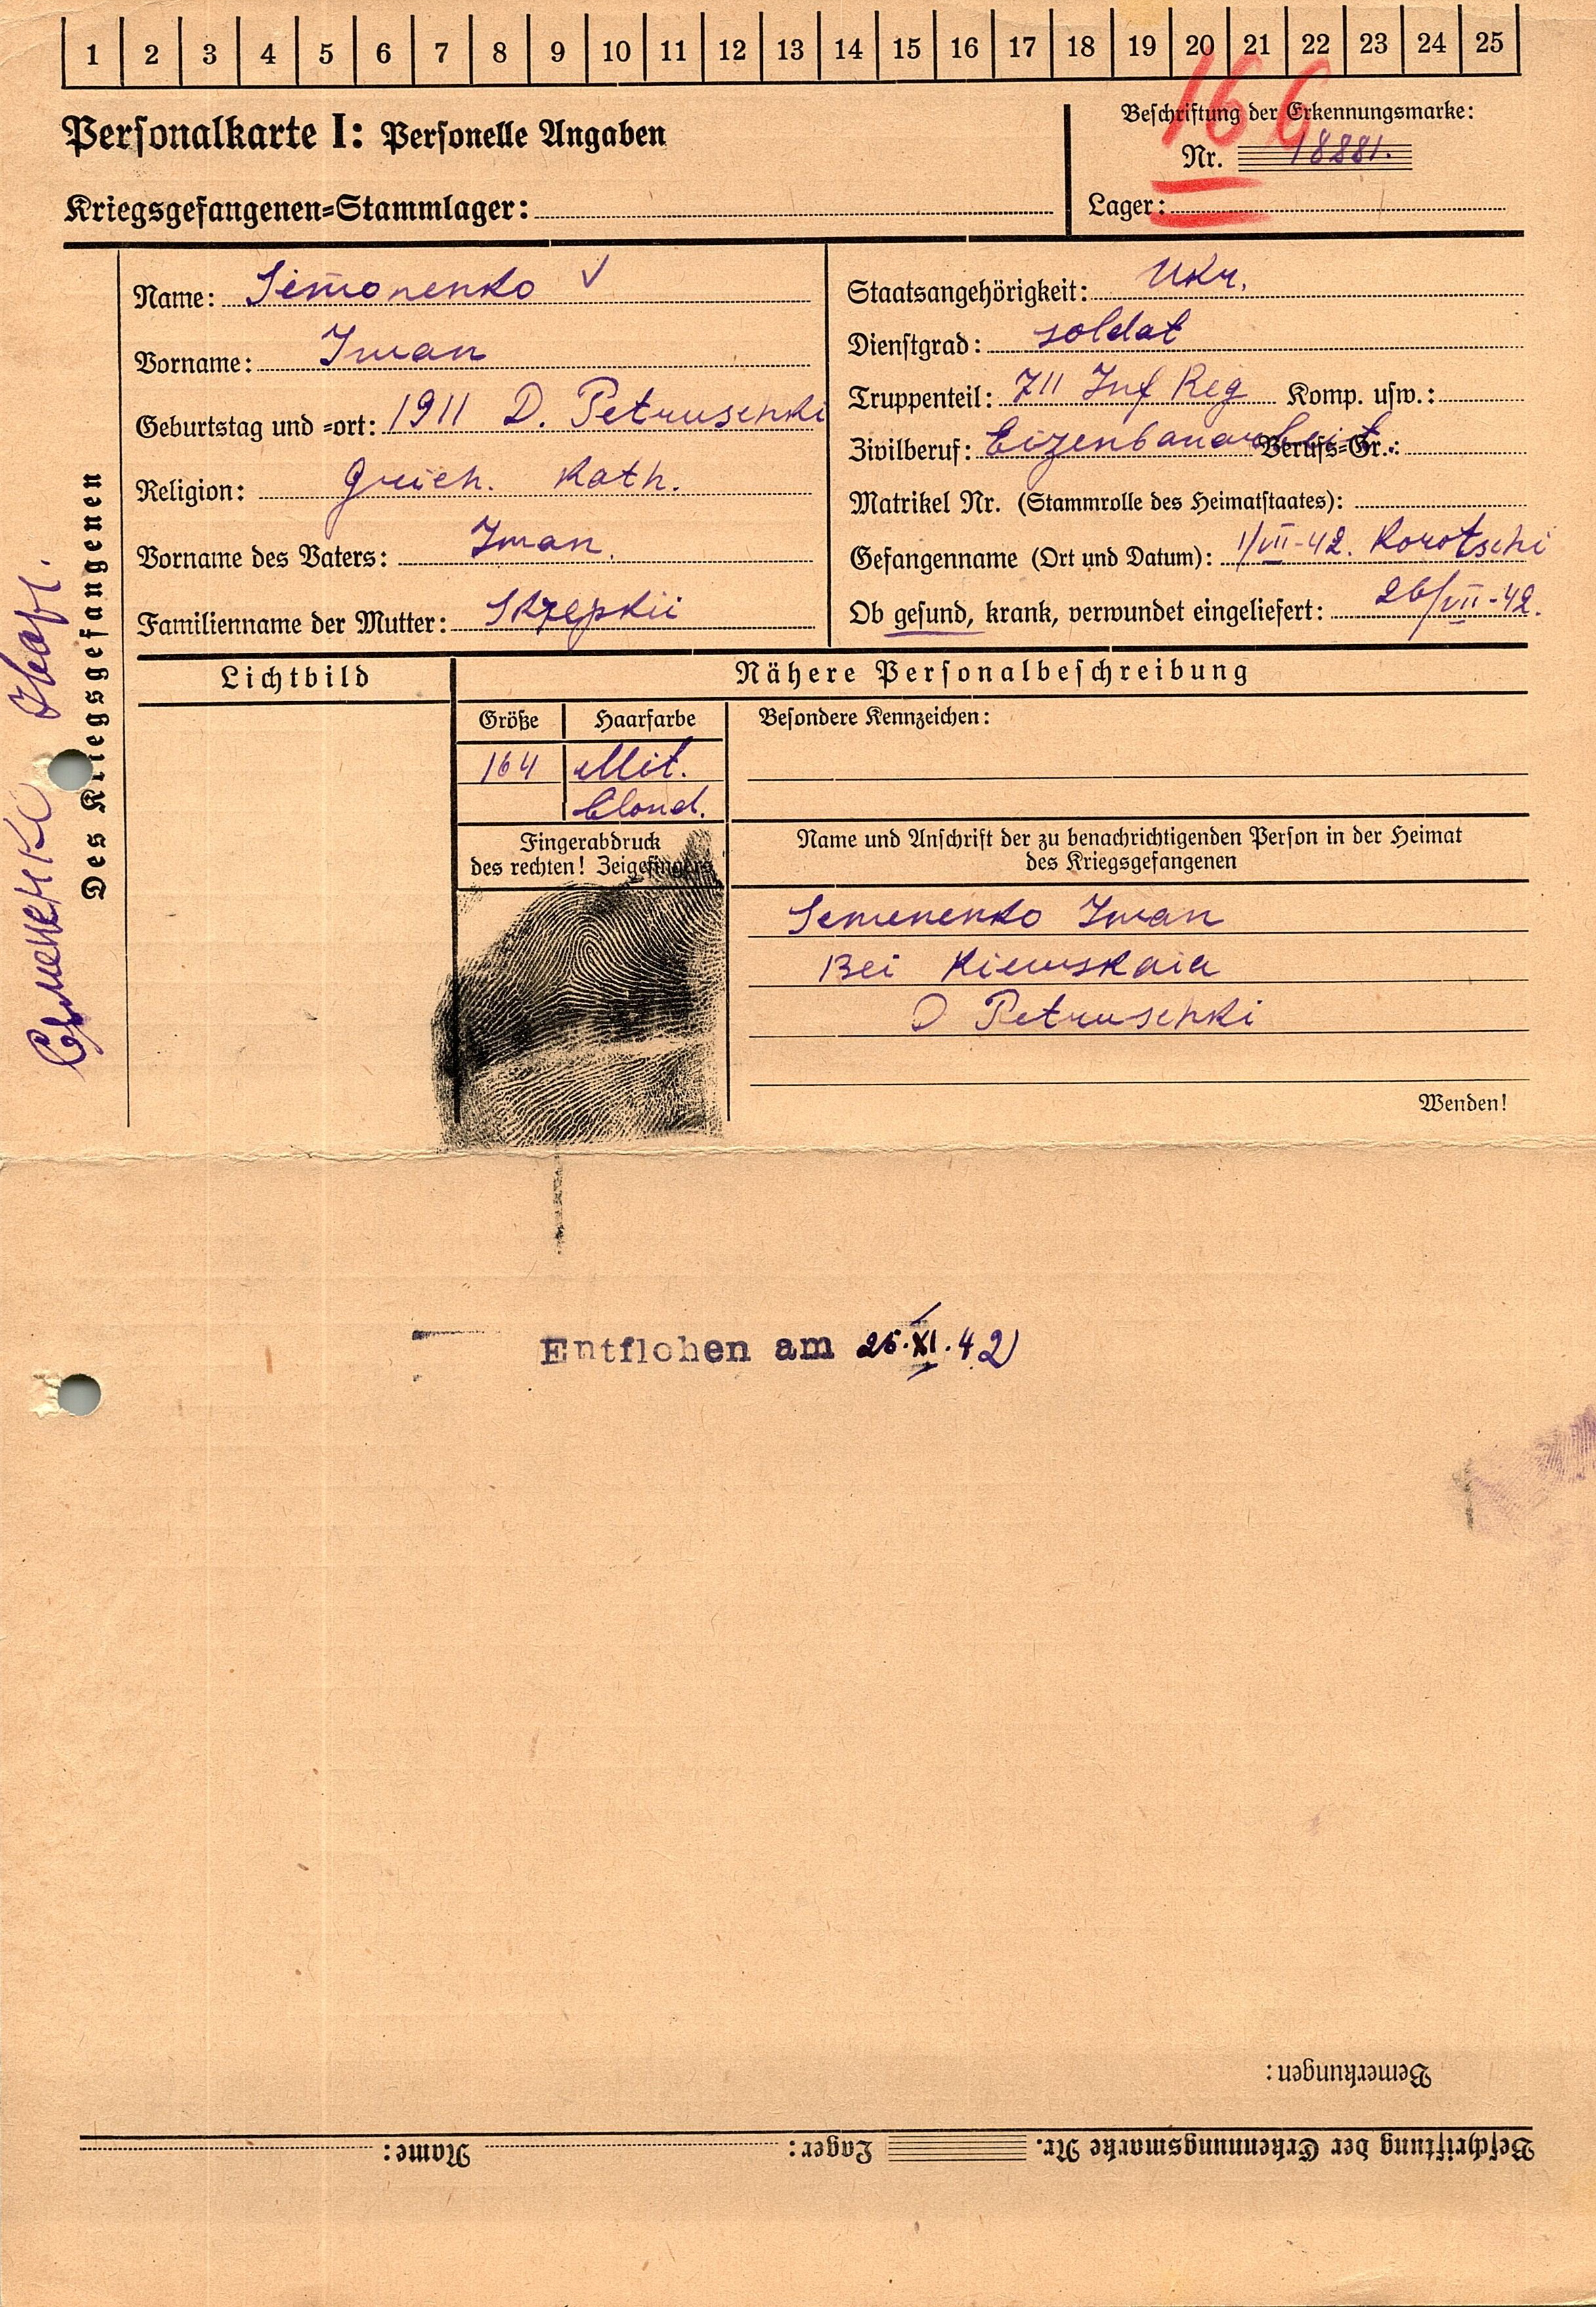 1 2 3 4 5 6 7 8 9 10 11 12 13 14 15 16 17 18 19 20 21 22 23 24 25
16 6
Personalkarte I: Personelle Angaben
Kriegsgefangenen=Stammlager:
Beschriftung der Erkennungsmarke:
Nr. 18881.
Lager:
Des Kriegsgefangenen
Семенко Иван.
Name: Simonenko
Vorname: Iwan
Geburtstag und =ort: 1911 D. Petruschki
Religion: Griech. Kath.
Vorname des Vaters: Iwan.
Familienname der Mutter:
Staatsangehörigkeit: Ukr.
Dienstgrad: soldat
Truppenteil: 711 Inf Reg Komp. usw.:
Zivilberuf: Eizenbanarbeit. Berufs=Gr.:
Matrikel Nr. (Stammrolle des Heimatstaates):
Gefangenname (Ort und Datum): 1/VII-42. Korotschi
Ob gesund, krank, verwundet eingeliefert: 26/VII-42.
Lichtbild
Nähere Personalbeschreibung
Größe Haarfarbe
164 Mit.
blond.
Besondere Kennzeichen:
Fingerabdruck
des rechten! Zeigefingers
Name und Anschrift der zu benachrichtigenden Person in der Heimat
des Kriegsgefangenen
Semenenko Iwan
Bei Kiewskaia
D Petruschki
Wenden!
Entflohen am 26.XI.42
Bemerkungen:
Beschriftung der Erkennungsmarke Nr. Lager: Name: